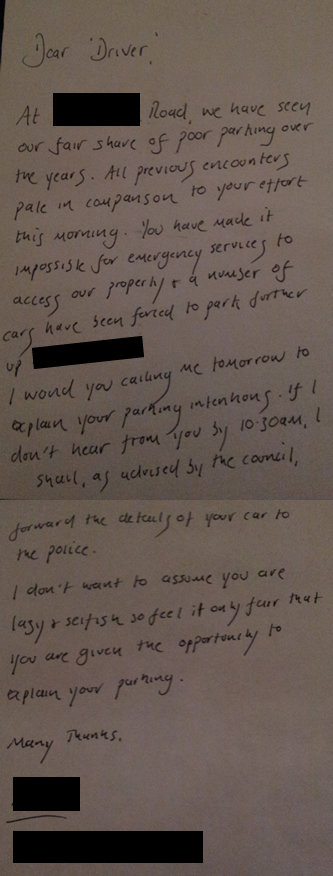 Dear 'Driver',
At Road, we have seen
our fair share of poor parking over
the years. All previous encounters
pale in comparison to your effort
this morning. You have made it
impossible for emergency services to
access our property & a number of
cars have been forced to park further
up
I would you calling me tomorrow to
explain your parking intentions. If I
don't hear from you by 10.30am, I
shall, as advised by the council,
forward the details of your car to
the police.
I don't want to assume you are
lazy & selfish so feel it only fair that
you are given the opportunity to
explain your parking.
Many Thanks.